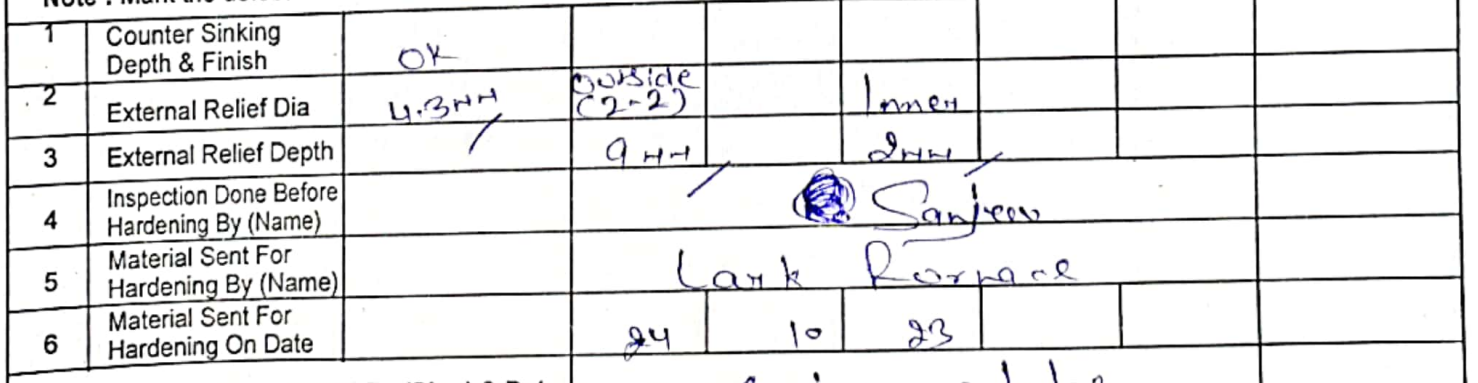 1 Counter Sinking
Depth & Finish OK
2 External Relief Dia 4.3MM Outside
(2-2) Inner
3 External Relief Depth 9MM 2MM
4 Inspection Done Before
Hardening By (Name) Sanjeev
5 Material Sent For
Hardening By (Name) Lark
6 Material Sent For
Hardening On Date 24 10 23